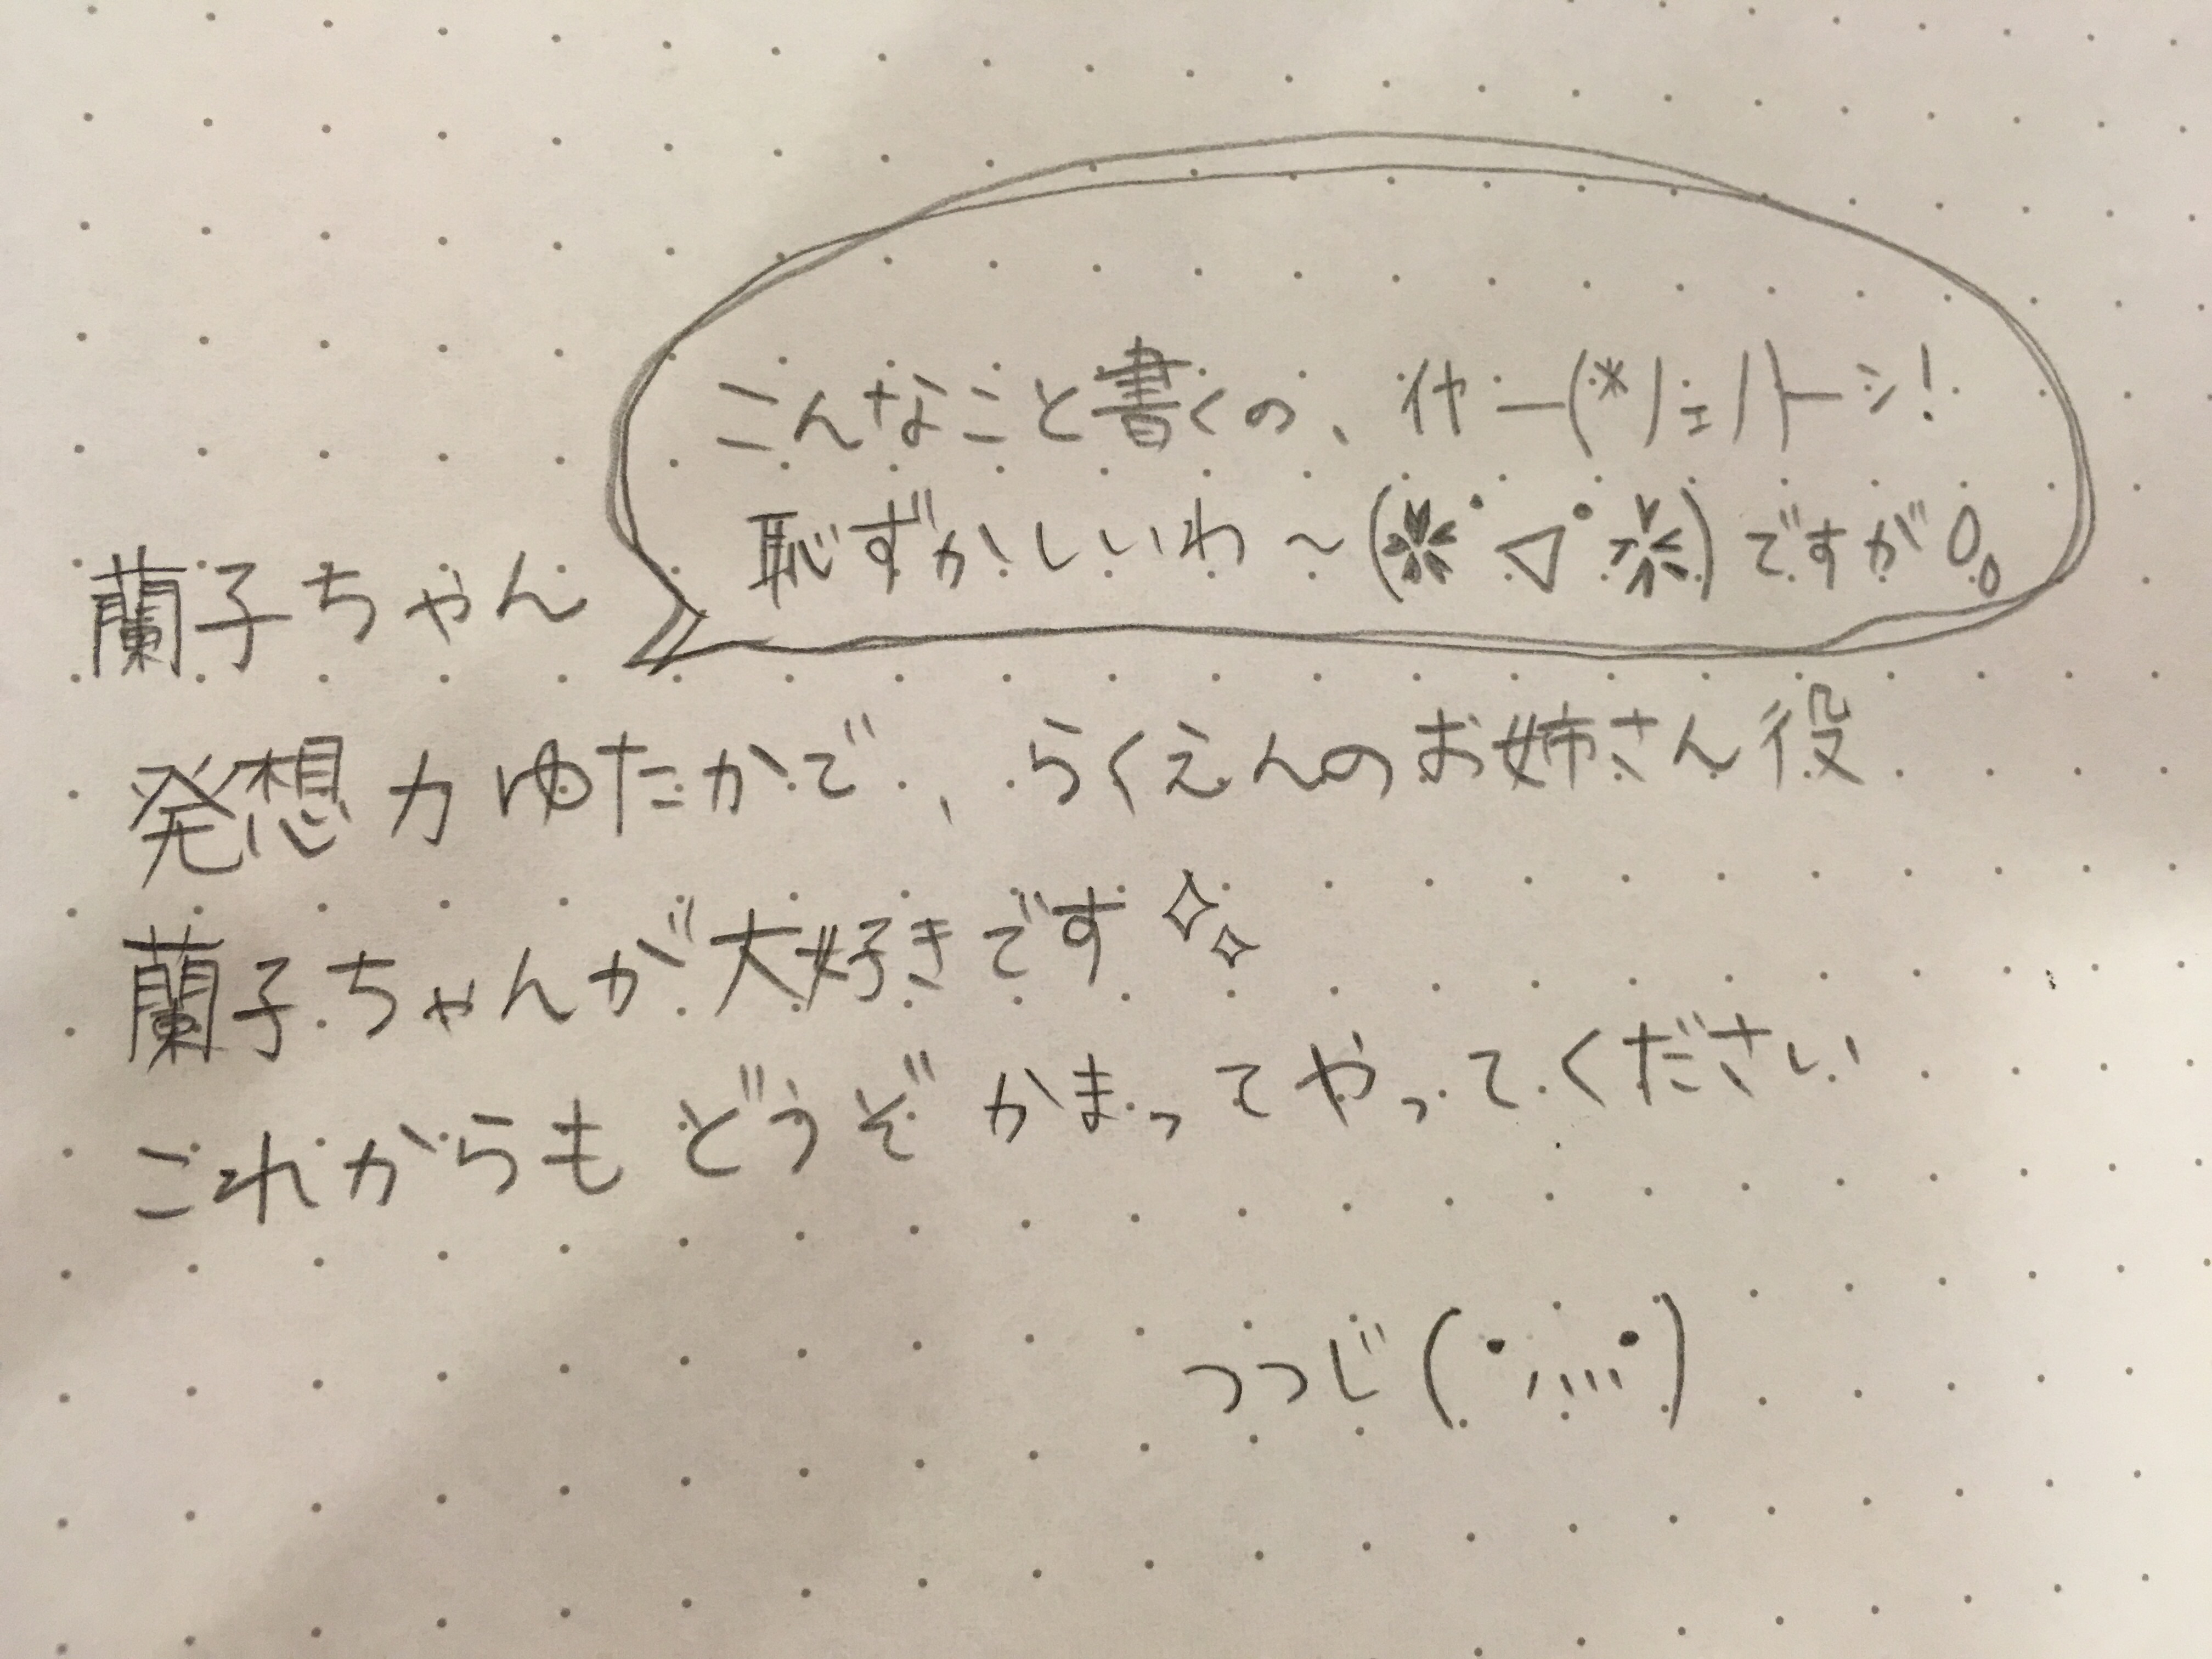 こんなこと書くの、イヤー(*ノェノ)トーシ!
恥ずかしいいわ~(❀˙▽˙❀)ですが。
蘭子ちゃん
発想力ゆたかで、らくえんのお姉さん役
蘭子ちゃんが大好きです✧✧
これからもどうぞかまってやってください
つつじ(˙灬˙)